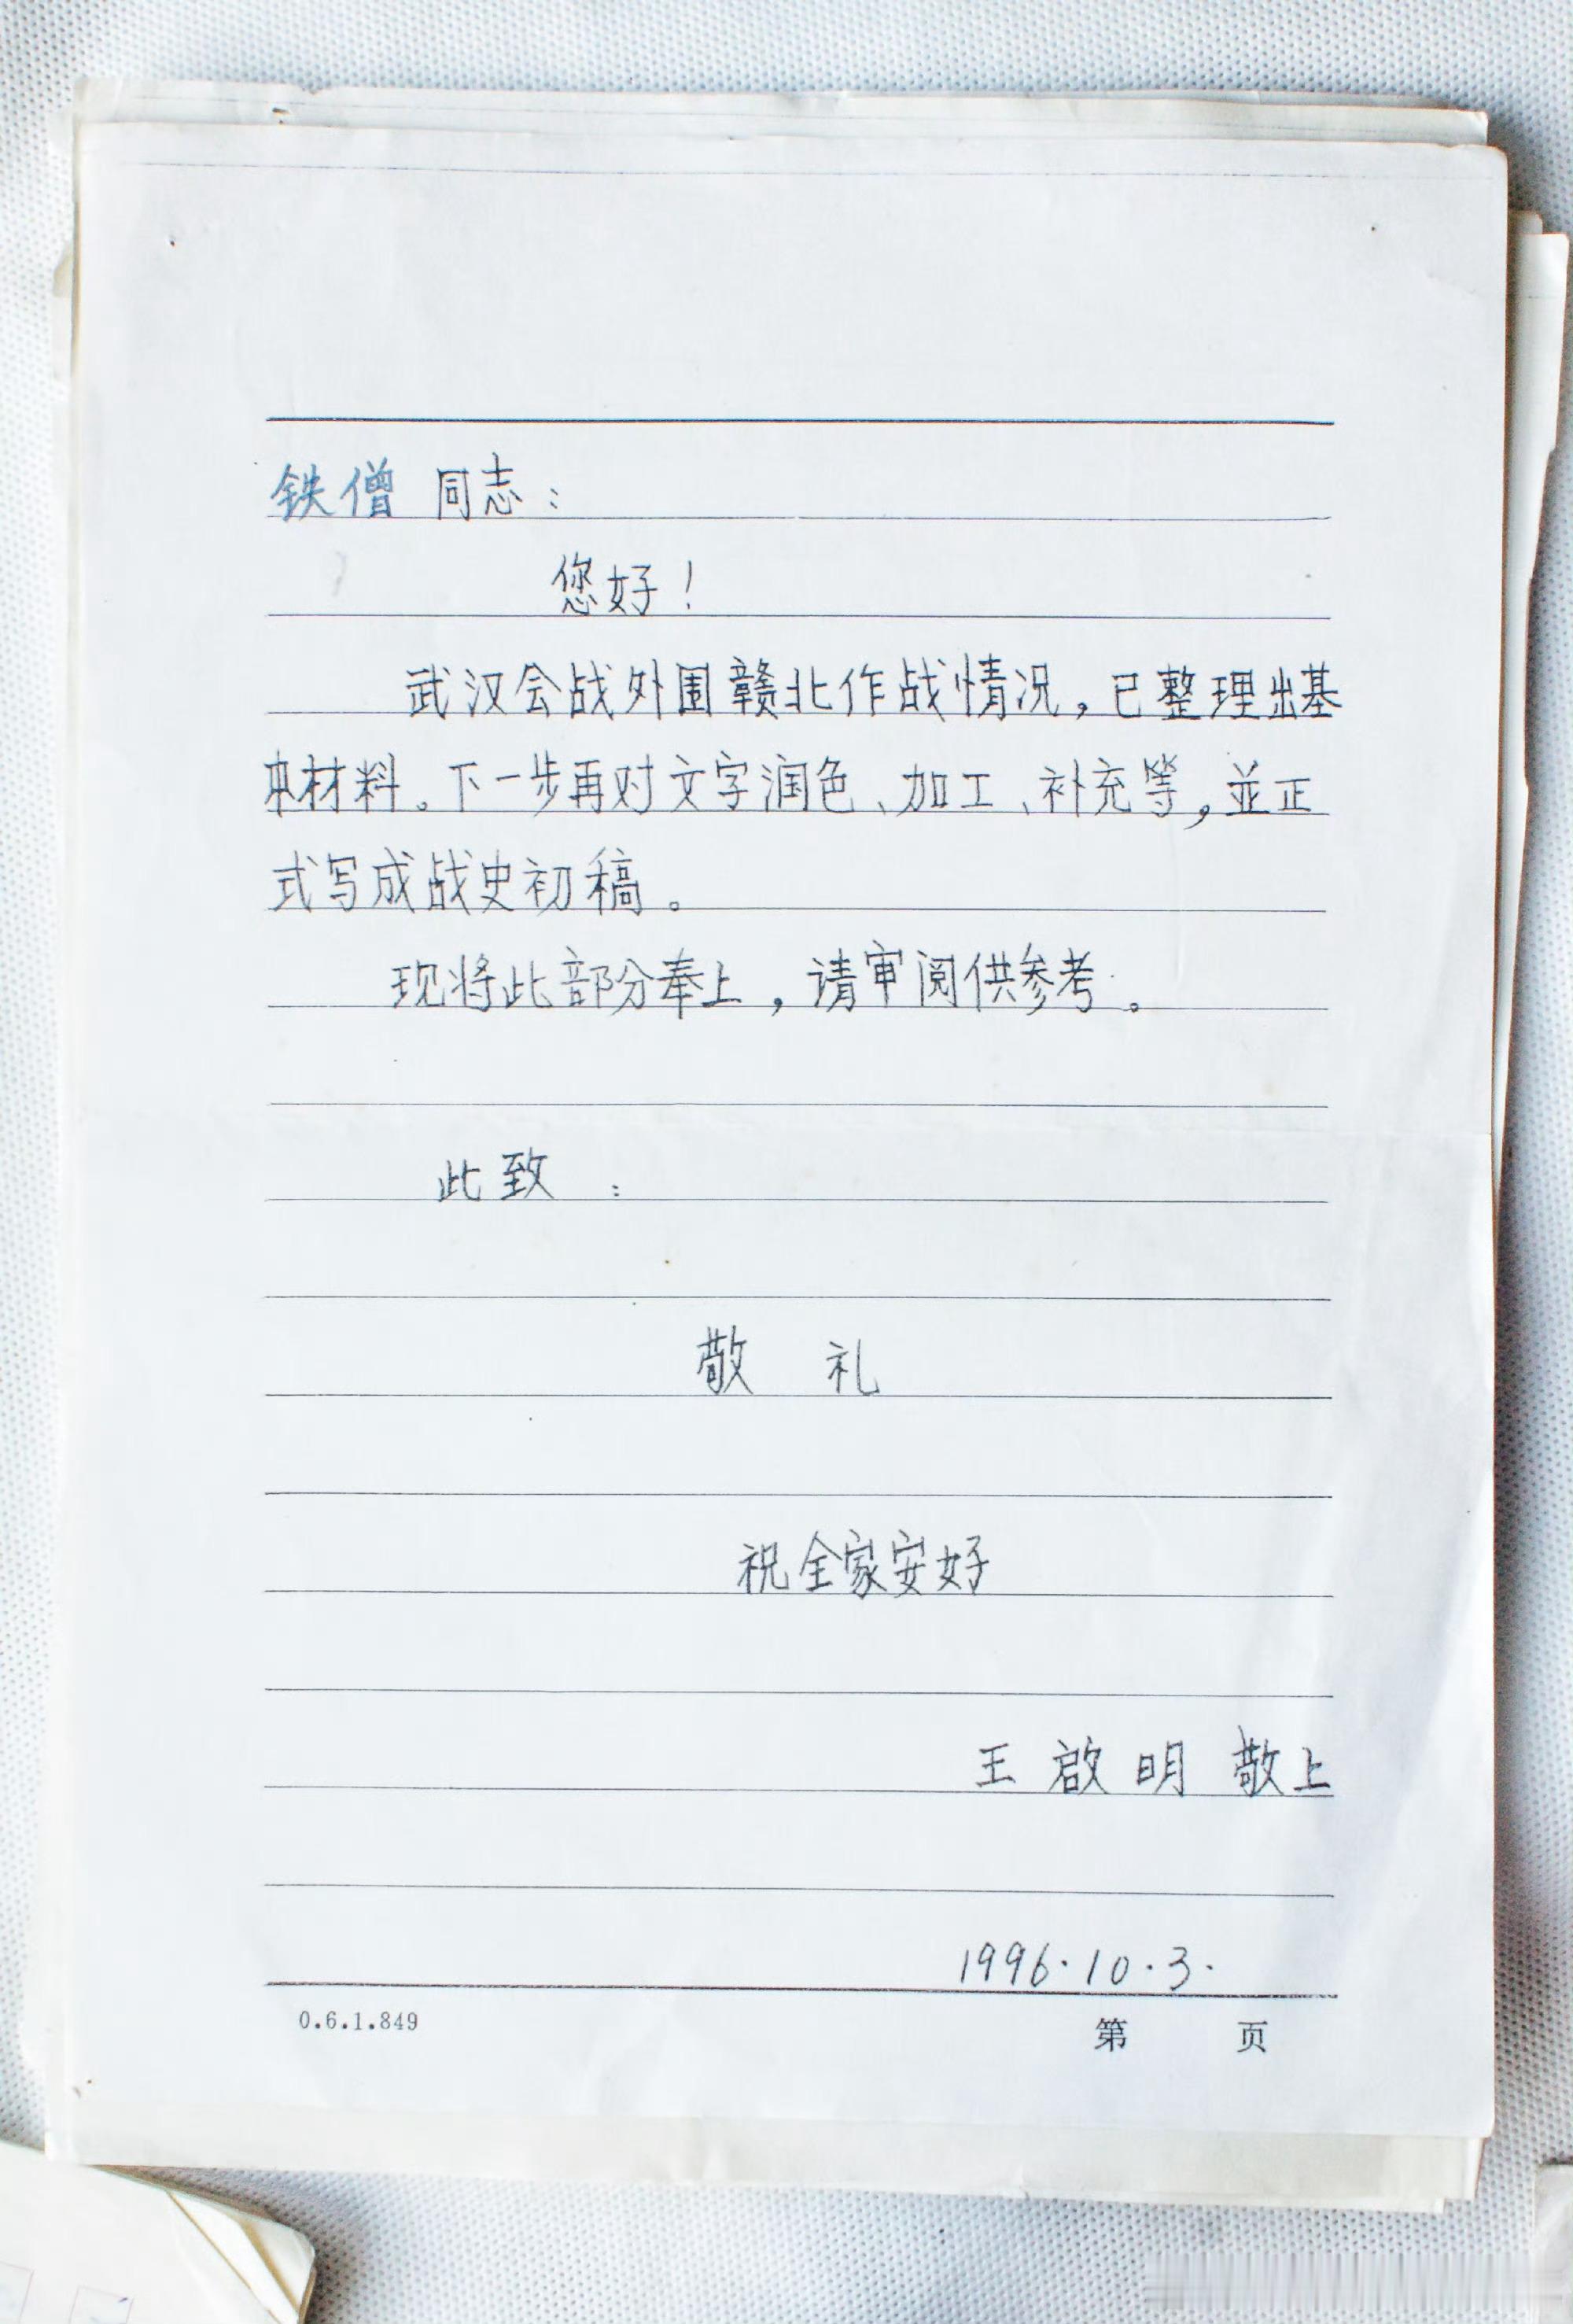 铁僧 同志：
您好！
武汉会战外围赣北作战情况，已整理出基
本材料。下一步再对文字润色、加工、补充等，並正
式写成战史初稿。
现将此部分奉上，请审阅供参考。
此致：
敬 礼
祝全家安好
王 啟 明 敬上
1996.10.3.
0.6.1.849 第 页